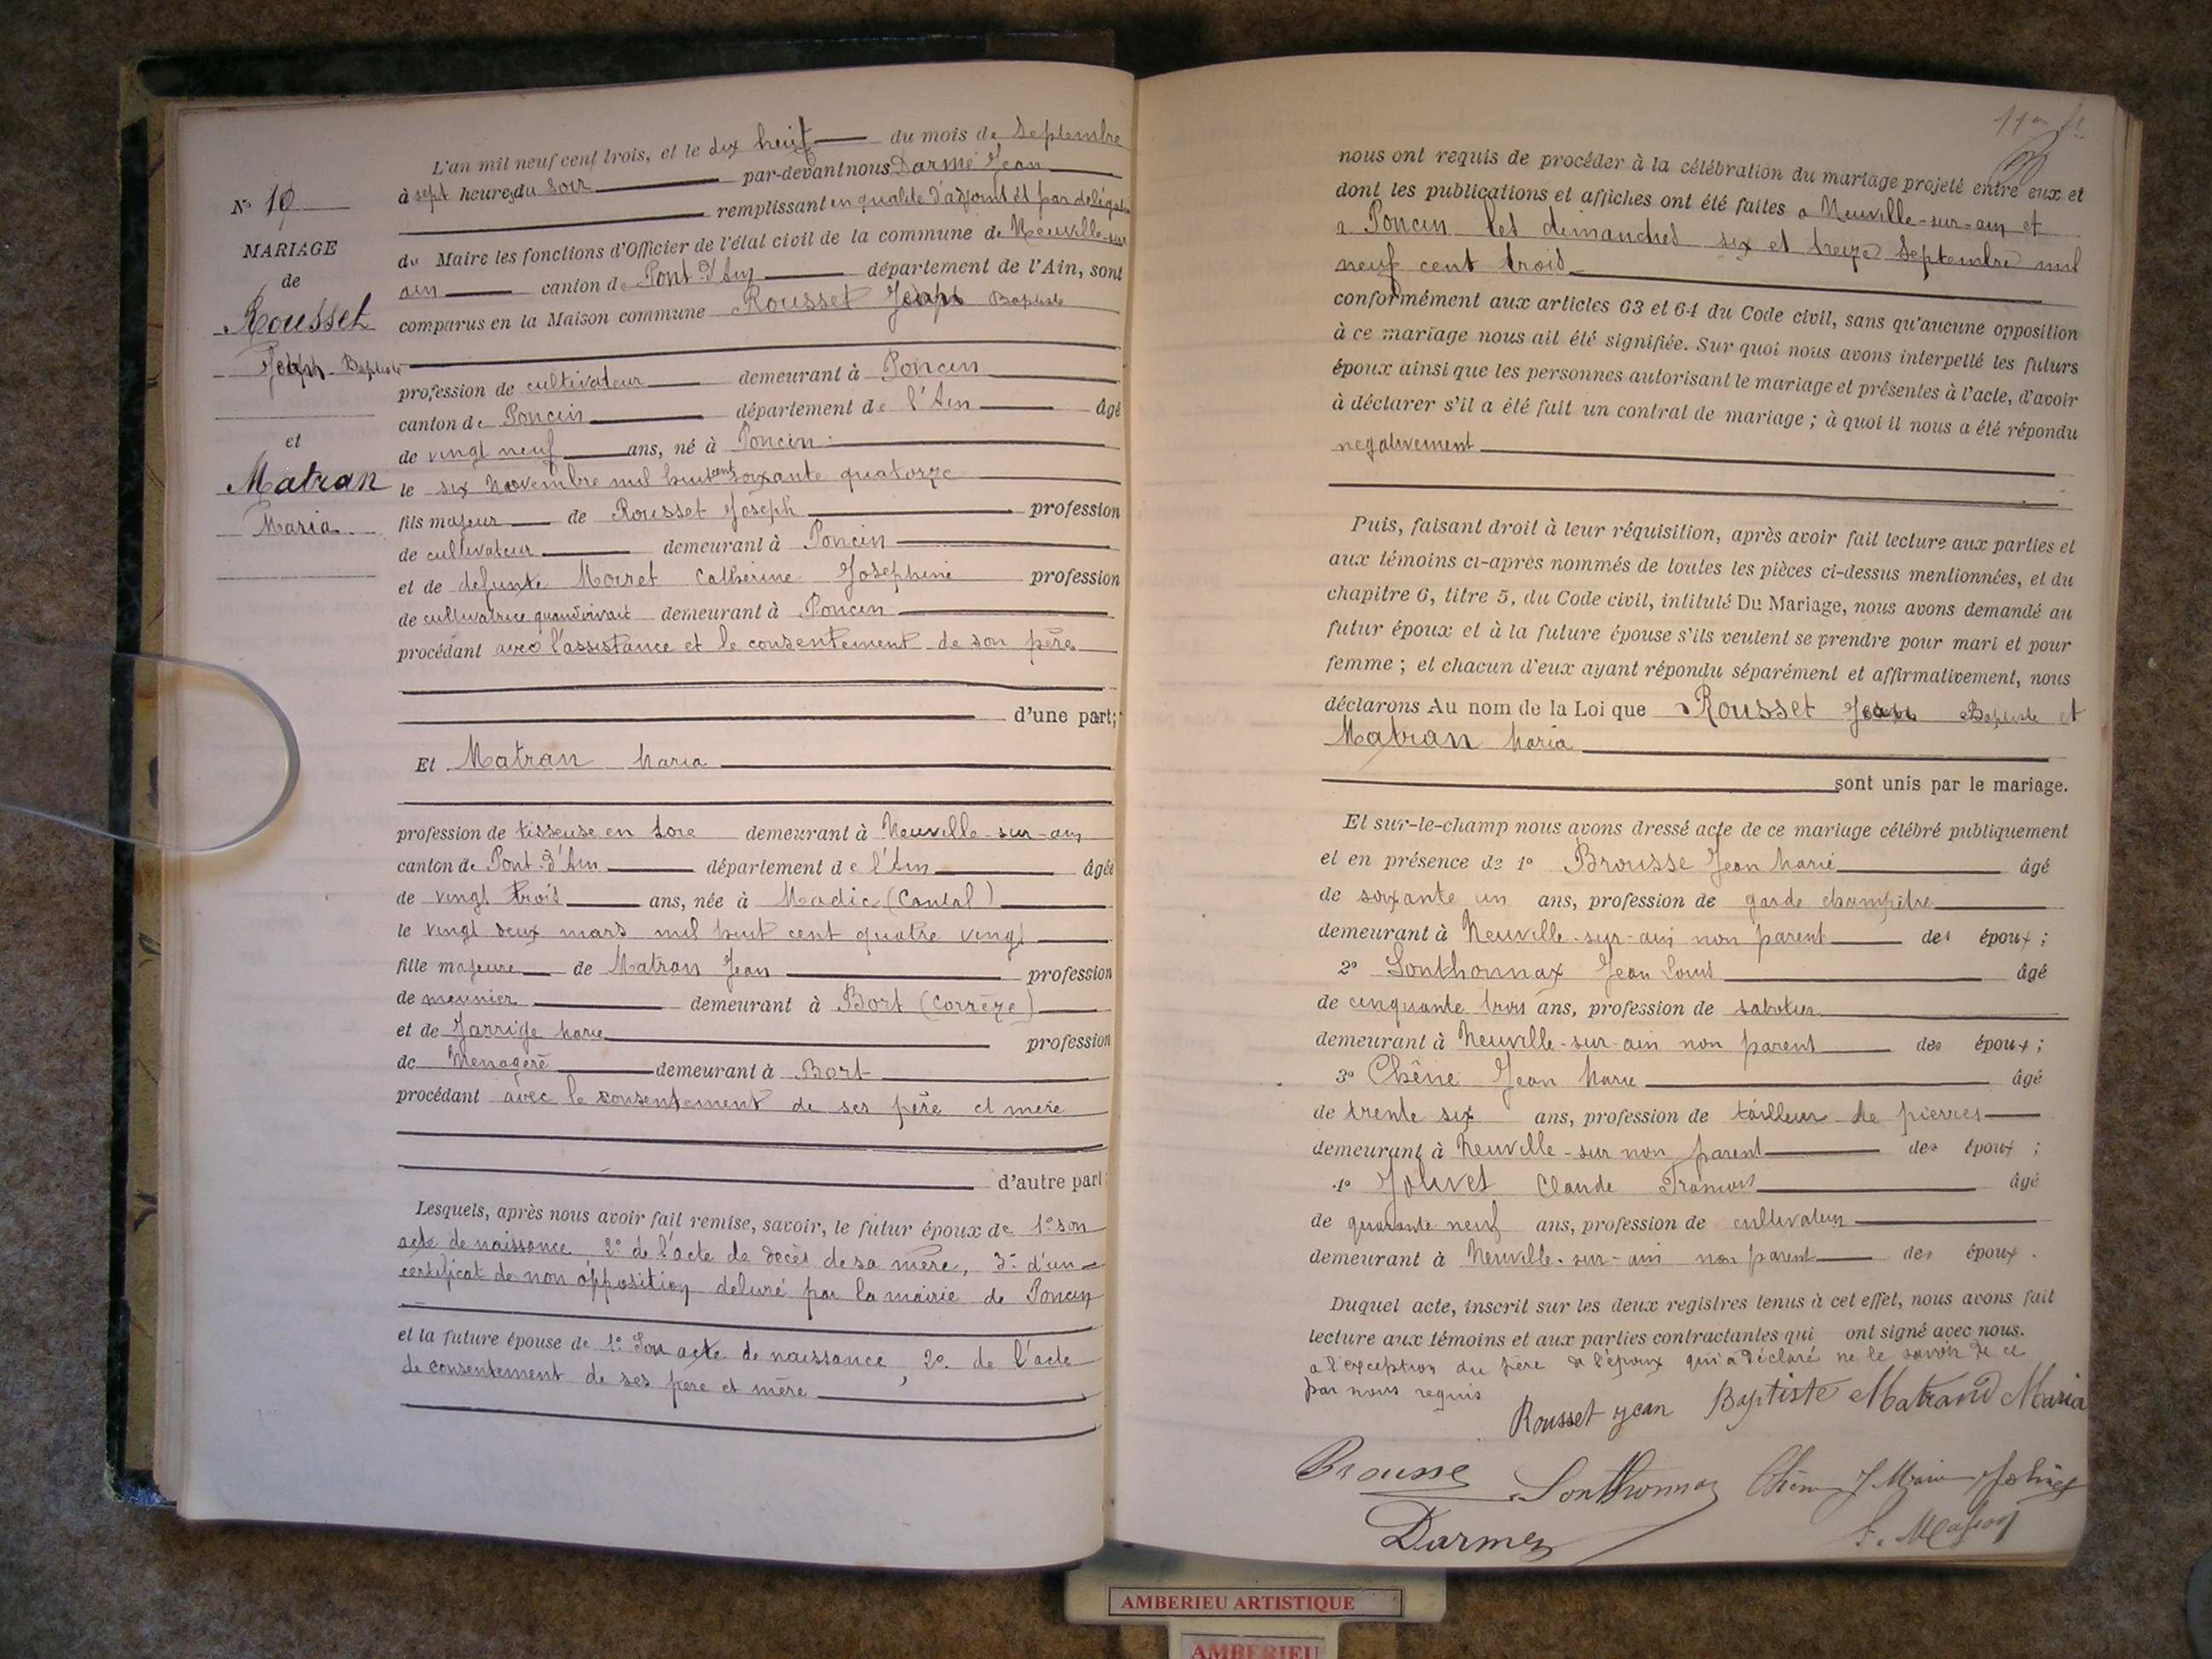 L'an mil neuf cent trois, et le dix huit du mois de Septembre
à sept heures du soir par-devant nous Darme Jean
remplissant en qualité d'adjoint et par délégation
du Maire les fonctions d'Officier de l'état civil de la commune de Neuville-sur
ain canton de Pont d'Ain département de l'Ain, sont
comparus en la Maison commune Rousset Jean Baptiste
profession de cultivateur demeurant à Poncin
canton de Poncin département de l'Ain âgé
de vingt neuf ans, né à Poncin
le six Novembre mil huit cent soixante quatorze
fils majeur de Rousset Joseph profession
de cultivateur demeurant à Poncin
et de defunte Moiret Catherine Josephine profession
de cultivatrice quand vivait demeurant à Poncin
procédant avec l'assistance et le consentement de son père
d'une part;
Et Matran Maria
profession de tisseuse en soie demeurant à Neuville-sur-ain
canton de Pont-d'Ain département de l'Ain âgée
de vingt trois ans, née à Madic (Cantal)
le vingt deux mars mil huit cent quatre vingt
fille majeure de Matran Jean profession
de meunier demeurant à Bort (Corrèze)
et de Jarrige Marie profession
de Menagère demeurant à Bort
procédant avec le consentement de ses père et mère
d'autre part
Lesquels, après nous avoir fait remise, savoir, le futur époux de 1° son
acte de naissance 2° de l'acte de decès de sa mère, 3° d'un
certificat de non opposition delivré par la mairie de Poncin
et la future épouse de 1° Son acte de naissance, 2° de l'acte
de consentement de ses père et mère
N° 10
MARIAGE
de
Rousset
Jean Baptiste
et
Matran
Maria
nous ont requis de procéder à la célébration du mariage projeté entre eux et
dont les publications et affiches ont été faites a Neuville-sur-ain et
a Poncin les dimanches six et treize Septembre mil
neuf cent trois
conformément aux articles 63 et 64 du Code civil, sans qu'aucune opposition
à ce mariage nous ait été signifiée. Sur quoi nous avons interpellé les futurs
époux ainsi que les personnes autorisant le mariage et présentes à l'acte, d'avoir
à déclarer s'il a été fait un contrat de mariage ; à quoi il nous a été répondu
negativement
Puis, faisant droit à leur réquisition, après avoir fait lecture aux parties et
aux témoins ci-après nommés de toutes les pièces ci-dessus mentionnées, et du
chapitre 6, titre 5, du Code civil, intitulé Du Mariage, nous avons demandé au
futur époux et à la future épouse s'ils veulent se prendre pour mari et pour
femme ; et chacun d'eux ayant répondu séparément et affirmativement, nous
déclarons Au nom de la Loi que Rousset Jean Baptiste et
Matran Maria
sont unis par le mariage.
Et sur-le-champ nous avons dressé acte de ce mariage célébré publiquement
et en présence de 1° Brousse Jean Marie âgé
de soixante un ans, profession de garde champêtre
demeurant à Neuville-sur-ain non parent des époux ;
2° Sonthonnax Jean Louis âgé
de cinquante trois ans, profession de sabotier
demeurant à Neuville-sur-ain non parent des époux ;
3° Chêne Jean Marie âgé
de trente six ans, profession de tailleur de pierres
demeurant à Neuville-sur non parent des époux ;
4° Jolivet Claude François âgé
de quarante neuf ans, profession de cultivateur
demeurant à Neuville-sur-ain non parent des époux.
Duquel acte, inscrit sur les deux registres tenus à cet effet, nous avons fait
lecture aux témoins et aux parties contractantes qui ont signé avec nous.
a l'exception du père de l'époux qui a déclaré ne le savoir de ce
par nous requis
Rousset jean Baptiste Matrand Maria
Brousse Sonthonnax Chêne J Marie Jolivet
Darme
AMBERIEU ARTISTIQUE
AMBERIEU